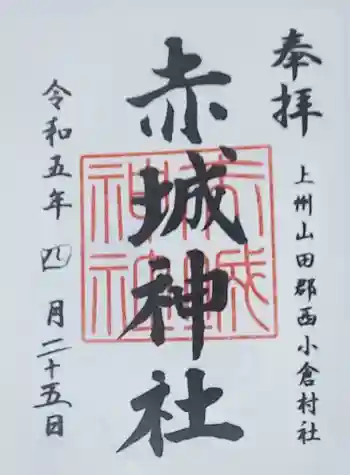 奉拝
上州山田郡西小倉村社
赤城神社
赤城神社
令和五年四月二十五日